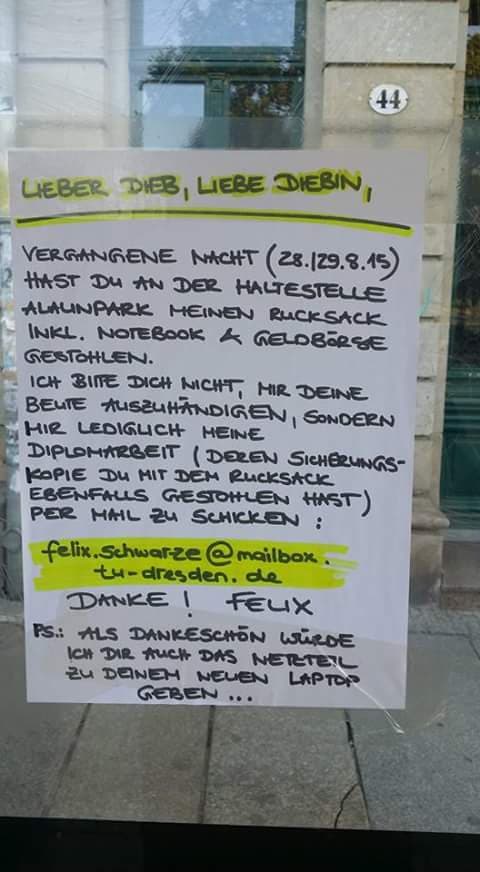 44
LIEBER DIEB, LIEBE DIEBIN,
VERGANGENE NACHT (28./29.8.15)
HAST DU AN DER HALTESTELLE
ALAUNPARK MEINEN RUCKSACK
INKL. NOTEBOOK & GELDBÖRSE
GESTOHLEN.
ICH BITTE DICH NICHT, MIR DEINE
BEUTE AUSZUHÄNDIGEN, SONDERN
MIR LEDIGLICH MEINE
DIPLOMARBEIT (DEREN SICHERUNGS-
KOPIE DU MIT DEM RUCKSACK
EBENFALLS GESTOHLEN HAST)
PER MAIL ZU SCHICKEN:
felix.schwarze@mailbox.
tu-dresden.de
DANKE! FELIX
PS.: ALS DANKESCHÖN WÜRDE
ICH DIR AUCH DAS NETZTEIL
ZU DEINEM NEUEN LAPTOP
GEBEN...